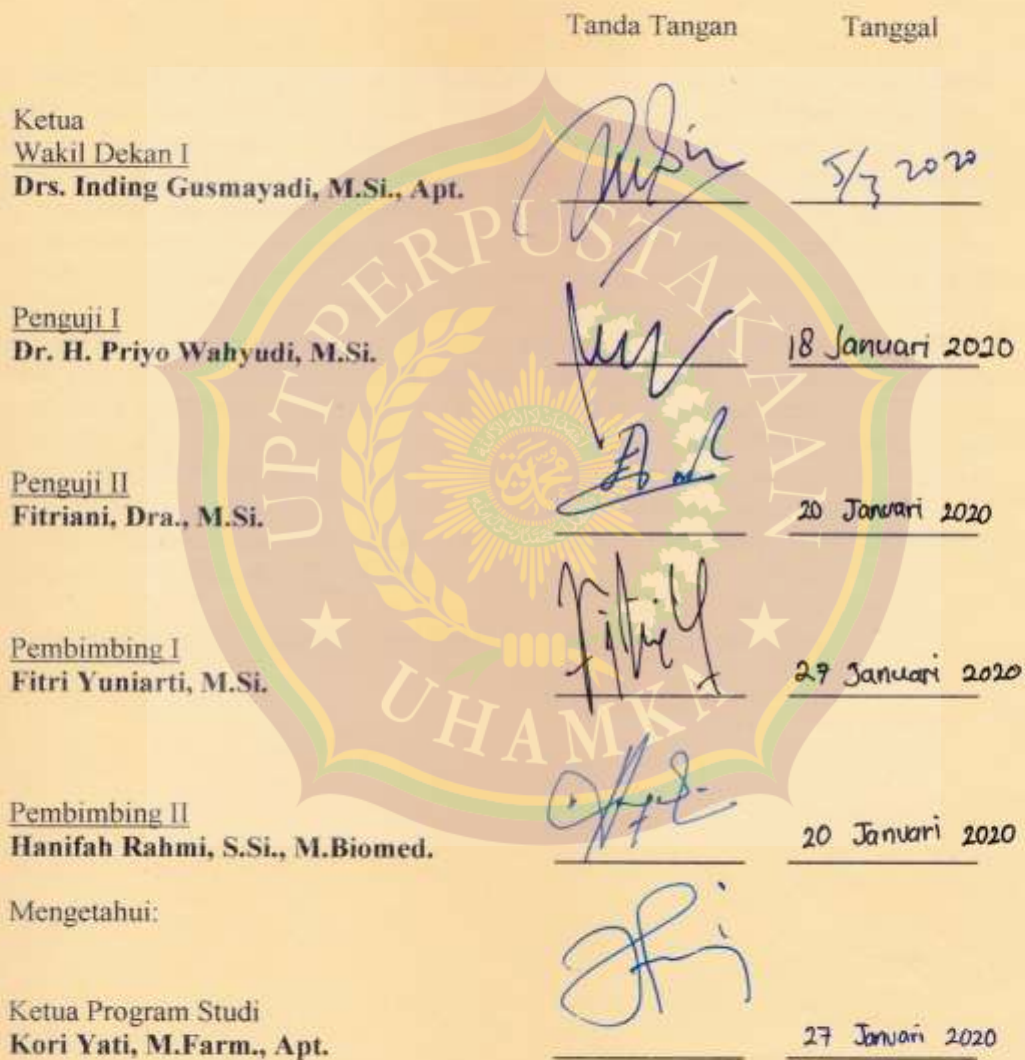 Tanda Tangan Tanggal
Ketua
Wakil Dekan I
Drs. Inding Gusmayadi, M.Si., Apt. 5/3 2020
Penguji I
Dr. H. Priyo Wahyudi, M.Si. 18 Januari 2020
Penguji II
Fitriani, Dra., M.Si. 20 Januari 2020
Pembimbing I
Fitri Yuniarti, M.Si. 27 Januari 2020
Pembimbing II
Hanifah Rahmi, S.Si., M.Biomed. 20 Januari 2020
Mengetahui:
Ketua Program Studi
Kori Yati, M.Farm., Apt. 27 Januari 2020
UPT PERPUSTAKAAN
UHAMKA